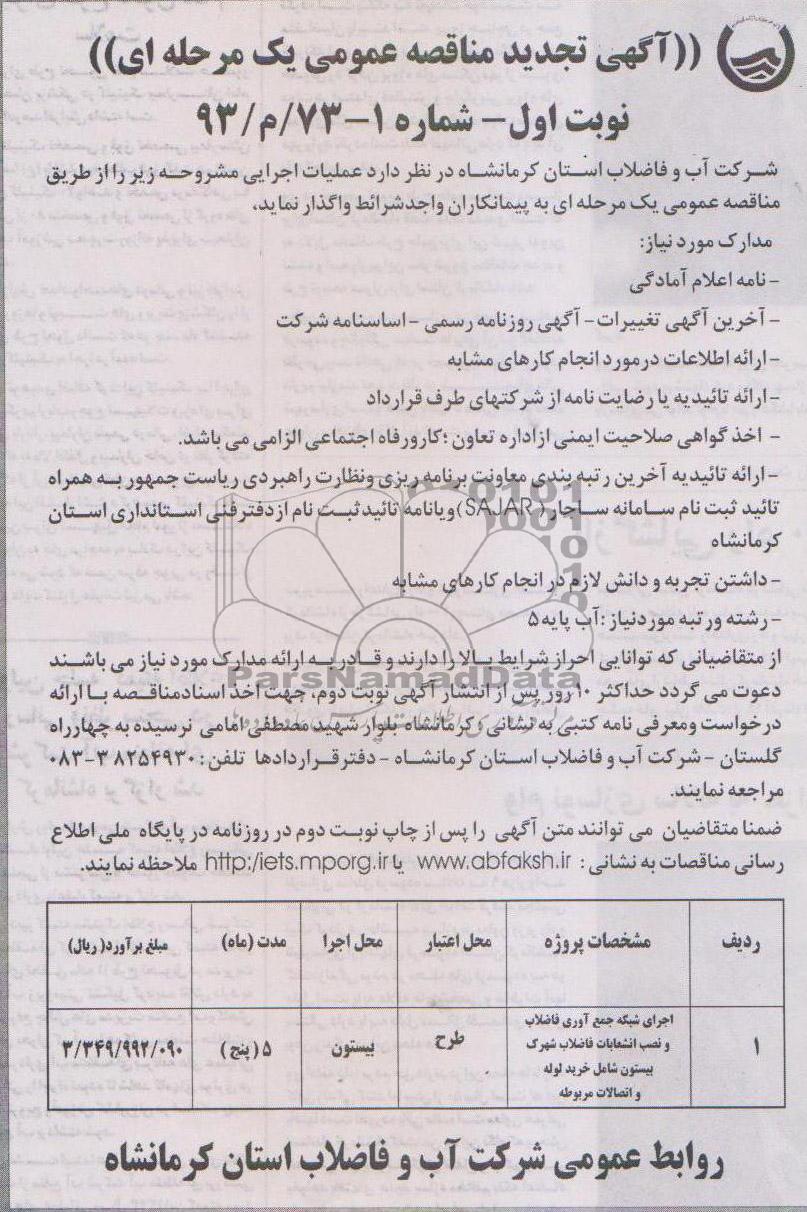 ((آگهی تجدید مناقصه عمومی یک مرحله ای))
نوبت اول- شماره ۱-۷۳/م/۹۳
شرکت آب و فاضلاب استان کرمانشاه در نظر دارد عملیات اجرایی مشروحه زیر را از طریق
مناقصه عمومی یک مرحله ای به پیمانکاران واجدشرائط واگذار نماید،
مدارک مورد نیاز:
-نامه اعلام آمادگی
- آخرین آگهی تغییرات- آگهی روزنامه رسمی -اساسنامه شرکت
-ارائه اطلاعات درمورد انجام کارهای مشابه
-ارائه تائیدیه یا رضایت نامه از شرکتهای طرف قرارداد
- اخذ گواهی صلاحیت ایمنی ازاداره تعاون ؛کارورفاه اجتماعی الزامی می باشد.
-ارائه تائیدیه آخرین رتبه بندی معاونت برنامه ریزی ونظارت راهبردی ریاست جمهور به همراه
تائید ثبت نام سامانه ساجار(SAJAR)ویانامه تائیدثبت نام ازدفترفنی استانداری استان
کرمانشاه
-داشتن تجربه و دانش لازم در انجام کارهای مشابه
-رشته ورتبه موردنیاز :آب پایه ۵
از متقاضیانی که توانایی احراز شرایط بالا را دارند و قادر به ارائه مدارک مورد نیاز می باشند
ParsNamadData
دعوت می گردد حداکثر ۱۰ روز پس از انتشار آگهی نوبت دوم، جهت اخذ اسنادمناقصه با ارائه
درخواست ومعرفی نامه کتبی به نشانی؛کرمانشاه- بلوار شهید مصطفی امامی نرسیده به چهارراه
گلستان -شرکت آب و فاضلاب استان کرمانشاه - دفترقراردادها تلفن: ۳۸۲۵۴۹۳۰-۰۸۳
مراجعه نمایند.
ضمنا متقاضیان می توانند متن آگهی را پس از چاپ نوبت دوم در روزنامه در پایگاه ملی اطلاع
رسانی مناقصات به نشانی : www.abfaksh.ir یا http:/iets.mporg.ir ملاحظه نمایند.
ردیف مشخصات پروژه محل اعتبار محل اجرا مدت (ماه) مبلغ برآورد( ریال)
۱ اجرای شبکه جمع آوری فاضلاب و نصب انشعابات فاضلاب شهرک بیستون شامل خرید لوله و اتصالات مربوطه طرح بیستون ۵ (پنج ) ۳/۳۴۹/۹۹۲/۰۹۰
روابط عمومی شرکت آب و فاضلاب استان کرمانشاه